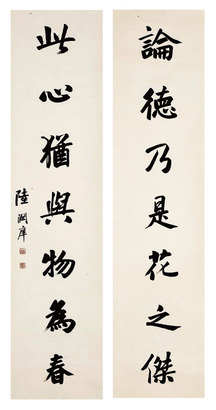 論德乃是花之傑
此心猶與物為春
陸潤庠